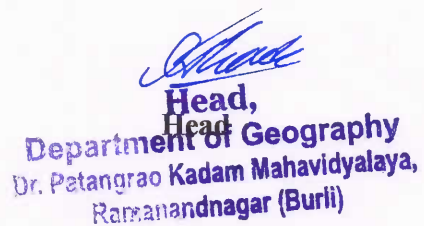 Head,
Head
Department of Geography
Dr. Patangrao Kadam Mahavidyalaya,
Ramanandnagar (Burli)